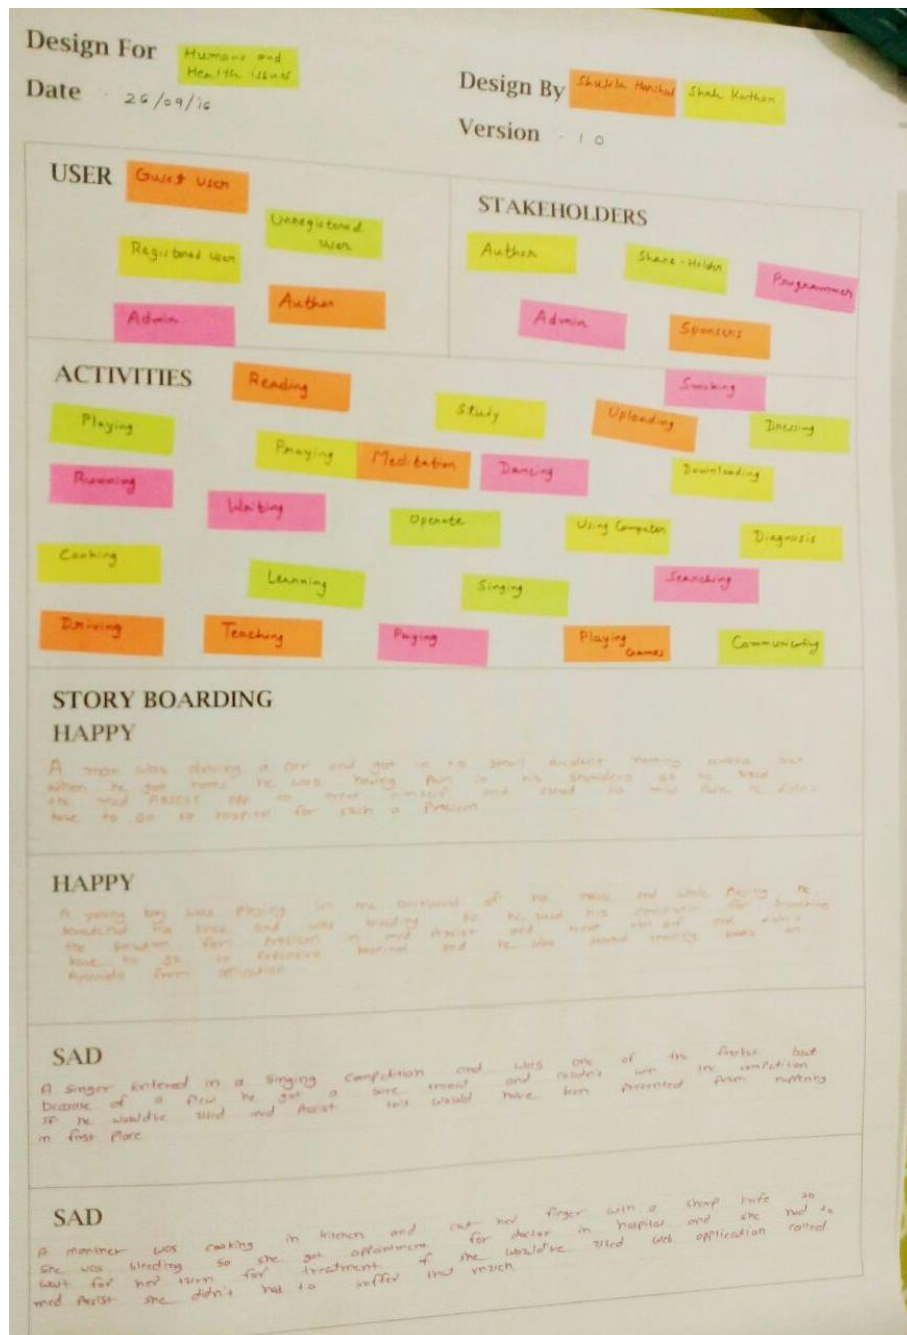 Design For Humans and
Health issues
Date 26/09/16
Design By Shukla Harshal Shah Karthan
Version - 1 0
USER
Guest User
Unregistered
User
Registered User
Author
Admin
STAKEHOLDERS
Author
Share-Holder
Programmer
Admin
Sponsers
ACTIVITIES
Reading
Smoking
Playing
Study
Uploading
Dressing
Praying
Meditation
Dancing
Downloading
Running
Writing
Operate
Using Computer
Diagnosis
Cooking
Learning
Singing
Searching
Driving
Teaching
Paying
Playing
Games
Communicating
STORY BOARDING
HAPPY
A man was driving a car and got in to small accident nothing but
when he got home he was having Pain in his shoulders so he used
the med Assist app to treat himself and he didn't
have to go to hospital for such a Problem
HAPPY
A young boy was Playing in the backyard of his house and while Playing he
his knee and was bleeding so he used his computer for searching
the solution Problem in med Assist and treat and didn't
have to go to Expensive hospital and he also reading books on
from application
SAD
A singer entered in a singing competition and was one of the but
because of a flew he got a sore throat and couldn't win the competition
If he would've used med Assist this would have been prevented from
in first Place
SAD
A was cooking in kitchen and cut her finger with a sharp knife so
she was bleeding so she got appointment for doctor in hospital and she had to
wait for her turn for treatment if she would've used web application called
med Assist she didn't had to suffer that much